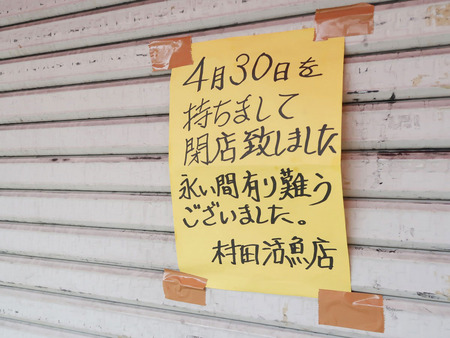 4月30日を
持ちまして
閉店致しました
永い間有り難う
ございました。
村田活魚店